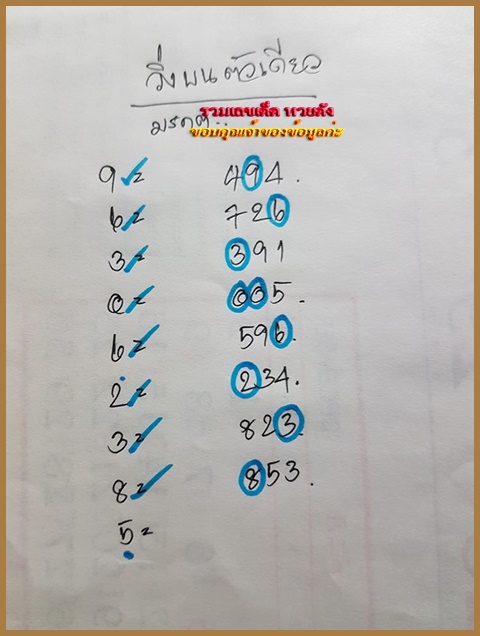 วิ่งบนตัวเดียว
รวมเลขเด็ด หวยดัง
ขอบคุณเจ้าของข้อมูลค่ะ
9 = 494.
6 = 726
3 = 391
0 = 005.
6 = 596.
2 = 234.
3 = 823.
8 = 853.
5 =